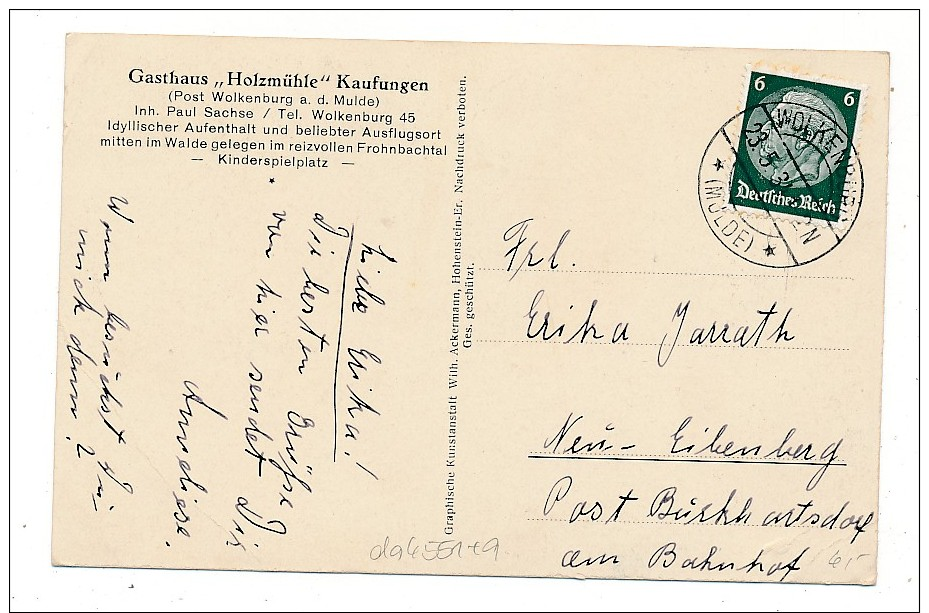 Gasthaus „Holzmühle" Kaufungen
(Post Wolkenburg a. d. Mulde)
Inh. Paul Sachse / Tel. Wolkenburg 45
Idyllischer Aufenthalt und beliebter Ausflugsort
mitten im Walde gelegen im reizvollen Frohnbachtal
— Kinderspielplatz —
Liebe Erika!
Die besten Grüße
von hier sendet Dir
Anneliese.
Wann besuchst Du
mich denn?
Graphische Kunstanstalt Wilh. Ackermann, Hohenstein-Er. Nachdruck verboten.
Ges. geschützt.
6 6
Deutsches Reich
WOLKENBURG
23.5.3
(MULDE)
Frl.
Erika Jarrath
Neu-Eibenberg
Post Burkhartsdorf
am Bahnhof